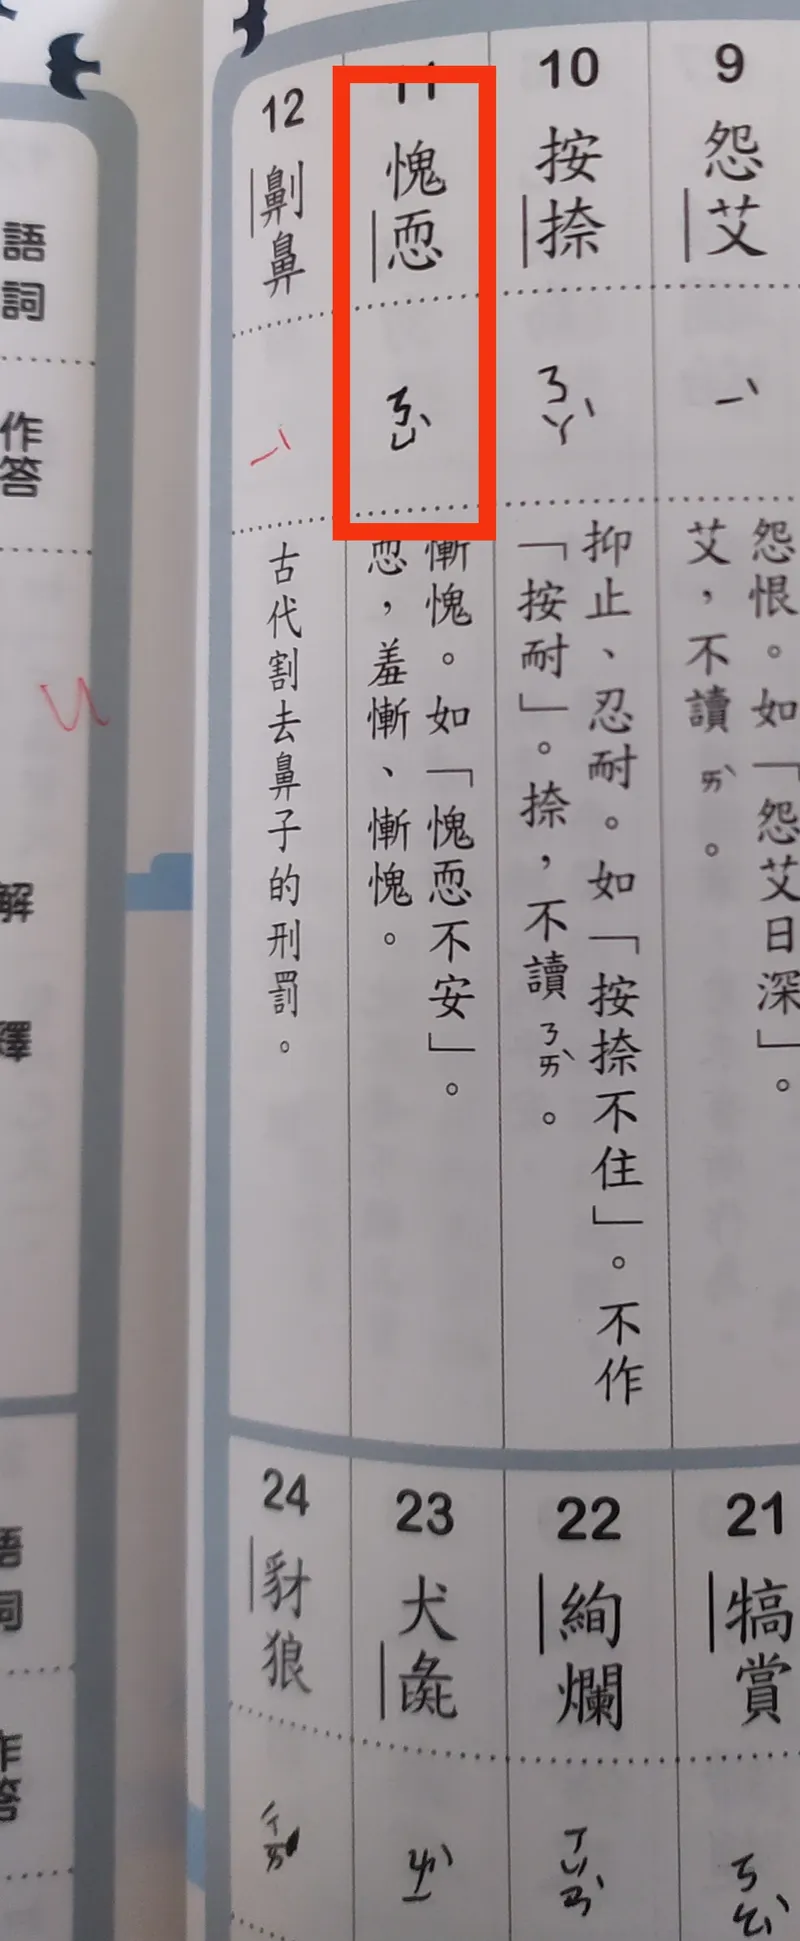 9
怨艾
ㄧˋ
怨恨。如「怨艾日深」。
艾，不讀ㄞˋ。
10
按捺
ㄋㄚˋ
抑止、忍耐。如「按捺不住」。不作
「按耐」。捺，不讀ㄋㄞˋ。
11
愧恧
ㄋㄩˋ
慚愧。如「愧恧不安」。
恧，羞慚、慚愧。
12
劓鼻
ㄧˋ
古代割去鼻子的刑罰。
21
犒賞
ㄎㄠˋ
22
絢爛
ㄒㄩㄢˋ
23
犬彘
ㄓˋ
24
豺狼
語詞
作答
解釋
語詞
作答